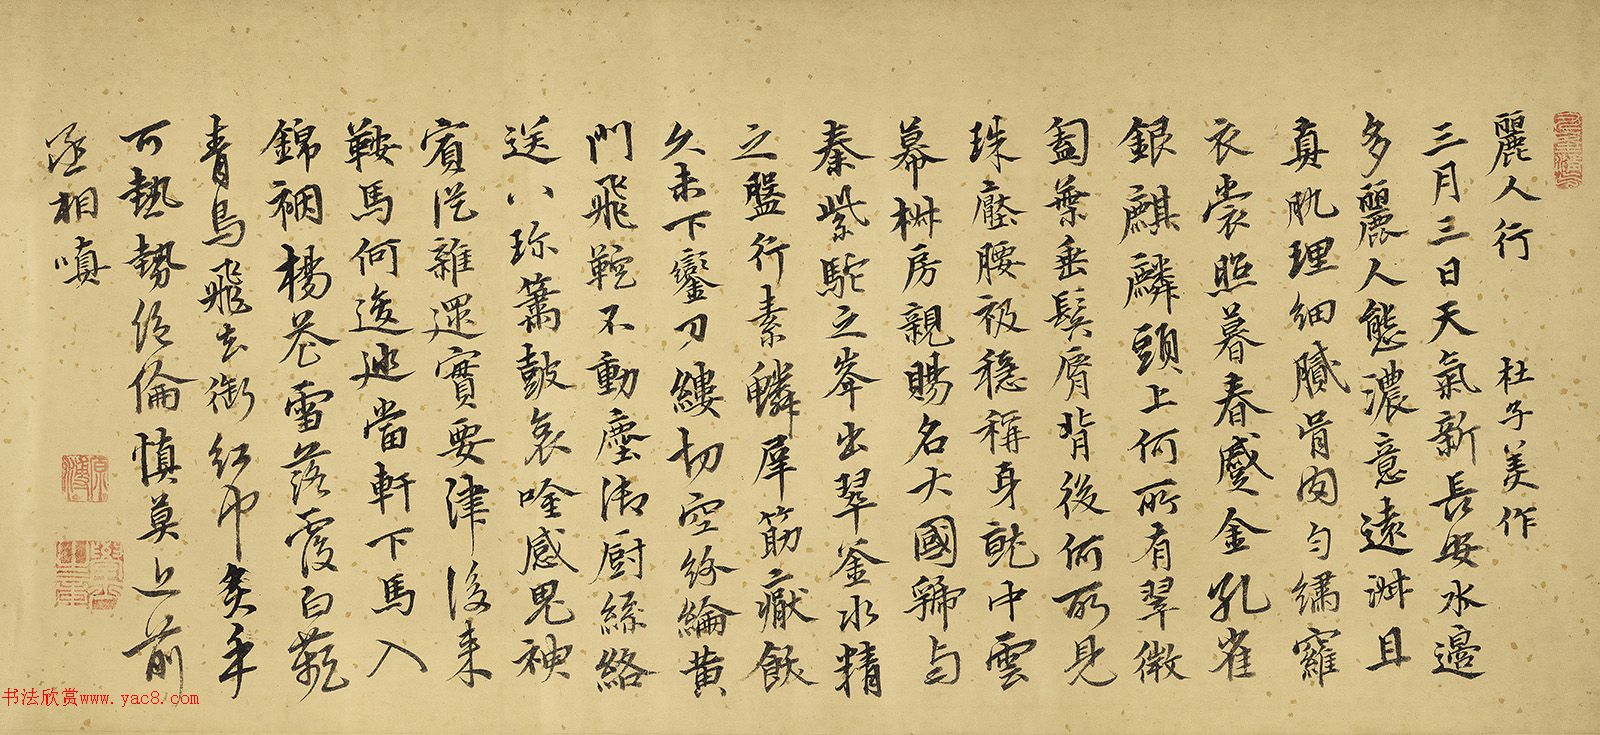 麗人行 杜子美作
三月三日天氣新長安水邊
多麗人態濃意遠淑且
真肌理細膩骨肉勻繡羅
衣裳照暮春蹙金孔雀
銀麒麟頭上何所有翠微
㔩葉垂鬢脣背後何所見
珠壓腰衱穩稱身就中雲
幕椒房親賜名大國虢与
秦紫駝之峯出翠釜水精
之盤行素鱗犀筯厭飫
久未下鸞刀縷切空紛綸黄
門飛鞚不動塵御厨絲絡
送八珎簫鼓哀唫感鬼神
賓從雜遝實要津後来
鞍馬何逡巡當軒下馬入
錦裀楊花雪落覆白蘋
青鳥飛去銜紅巾炙手
可熱勢絶倫慎莫近前
丞相嗔
书法欣赏www.yac8.com